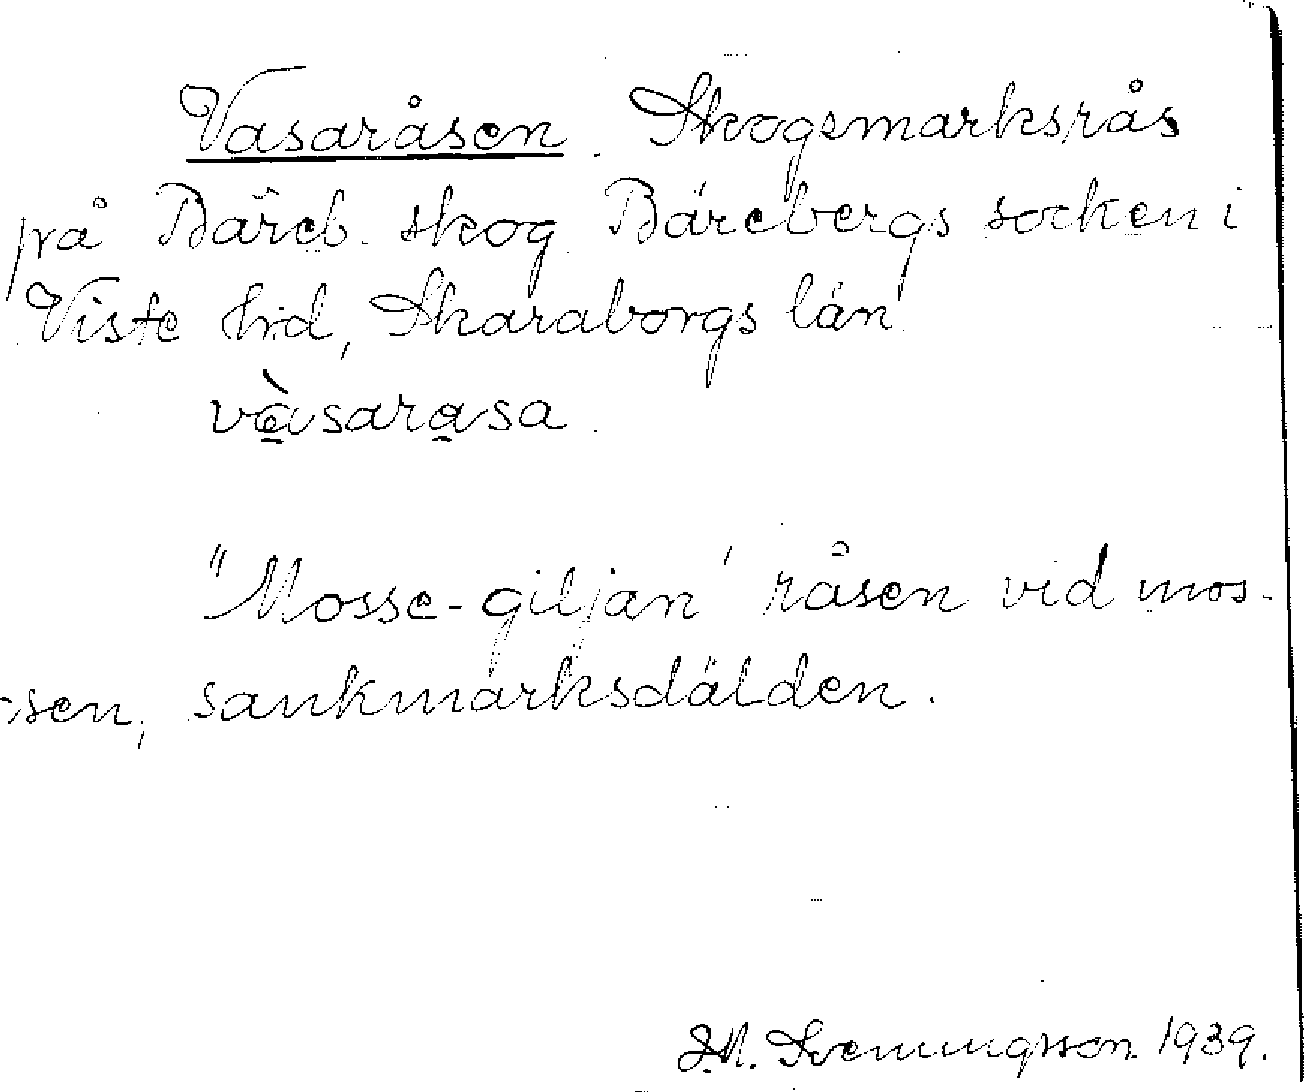 Vasaråsen. Skogsmarksrås
på Bäreb. skog. Bärebergs socken i
Viste hrd, Skaraborgs län.
vàsarasa.
"Mosse-giljan' råsen vid mos-
sen, sankmarksdälden.
J.M. Svenungsson 1939.